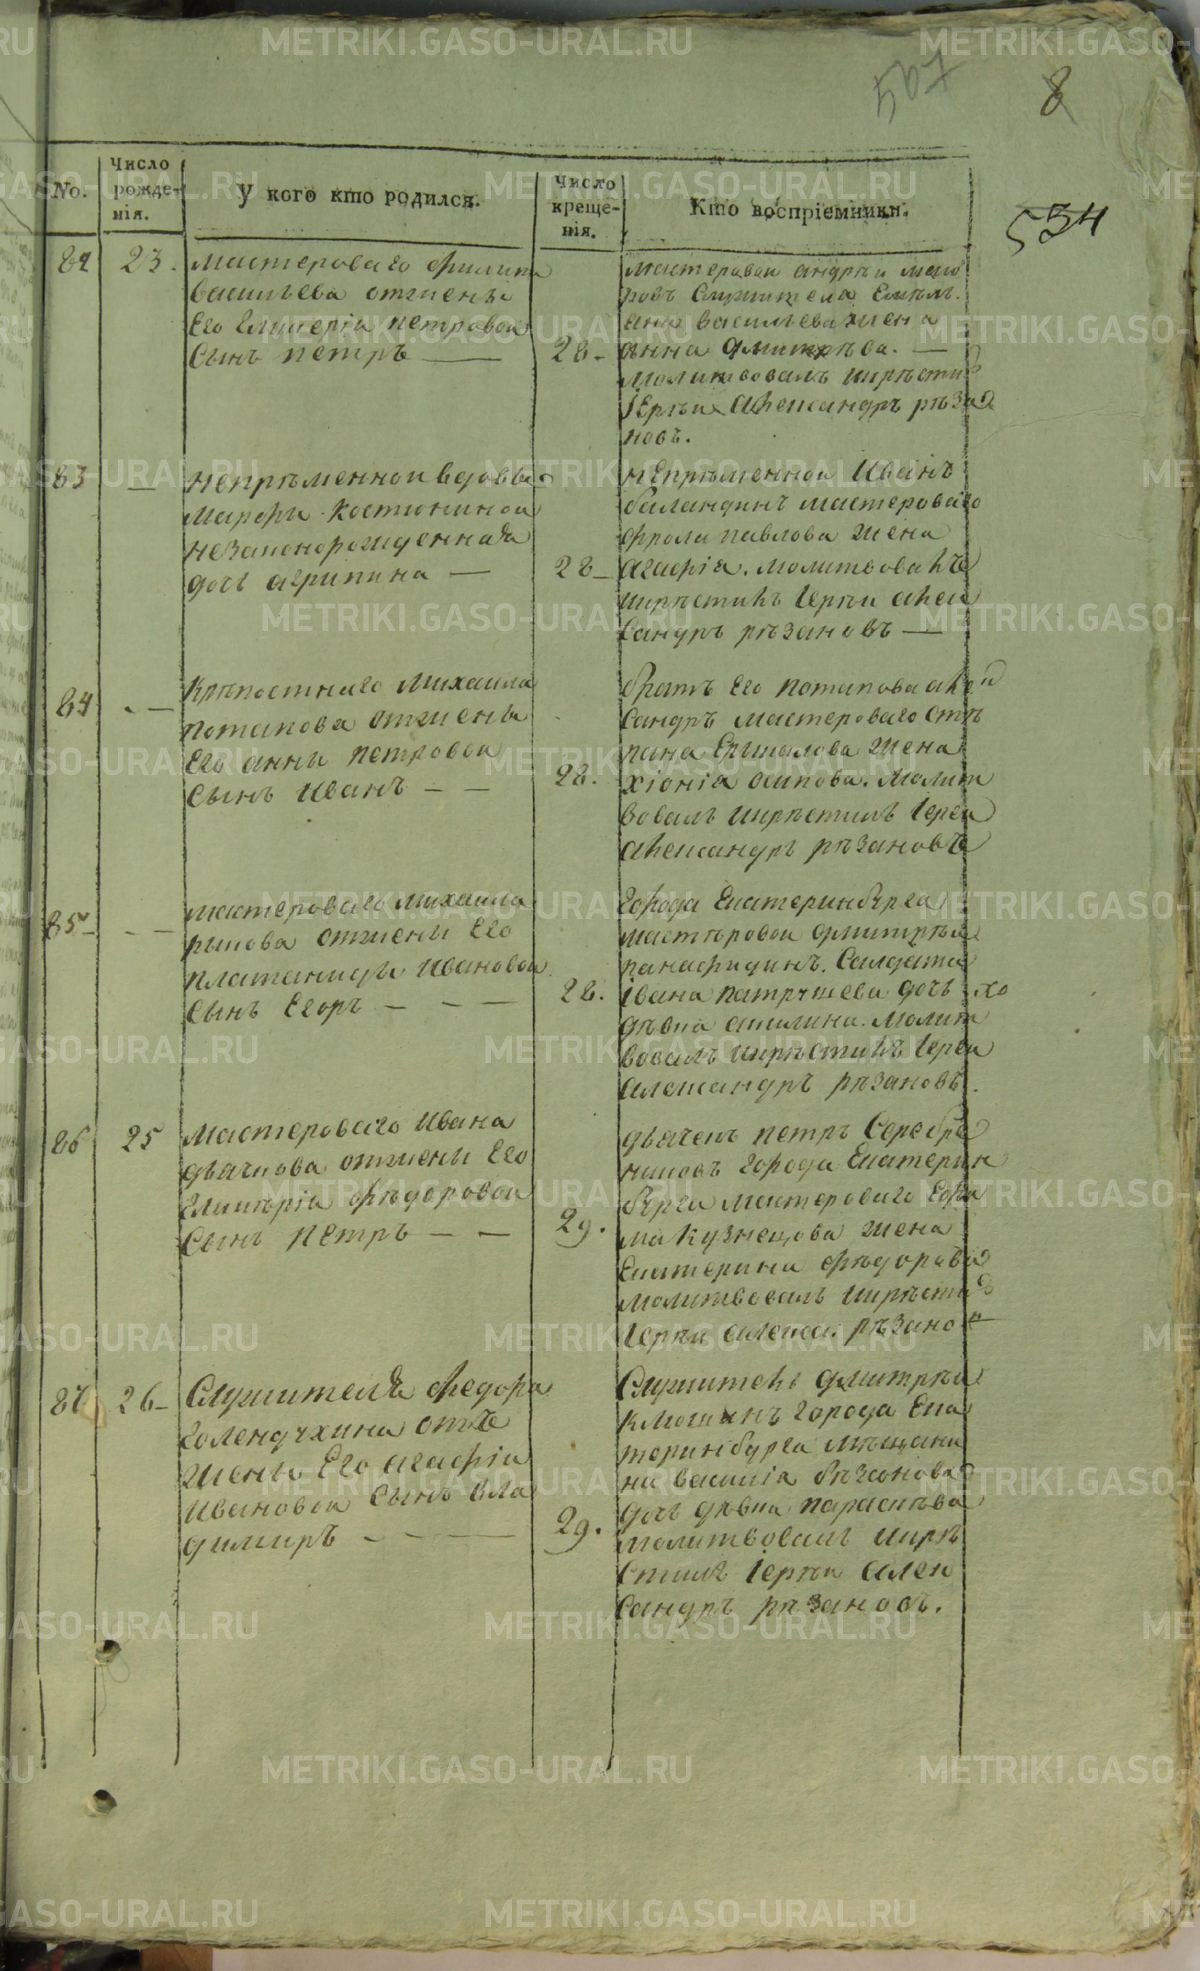 507
8
534
No.
Число рожде-нія.
У кого кто родился.
Число креще-нія.
Кто воспріемники.
82
23.
мастероваго филипа
васильева отжены
Его Гликеріи петровой
Сынъ петръ —
28-
мастеровой андрѣй
Служителя
васильева жена
анна дмитрѣва. —
молитвовалъ икрѣстилъ
Іерѣй александръ рѣза
новъ.
83
—
непрѣменной вдовы
марфы костюниной
незаконорожденная
дочь агрипина —
28-
непрѣменной Иванъ
баландинъ мастероваго
фрола павлова жена
агафія. молитвовалъ
икрѣстилъ Іерѣй алек
сандръ рѣзановъ —
84
. —
Крѣпостнаго Михаила
потапова отжены
Его анны петровой
сынъ иванъ — —
28.
братъ Его потапова алек
сандръ мастероваго стѣ
пана Ершалова жена
хіонія осипова. Молит
вовалъ икрѣстилъ Іерей
александръ рѣзановъ
85-
- —
мастероваго михаила
рыкова отжены Его
платониды ивановой
сынъ Егоръ — — —
28.
города Екатеринбурга
мастѣровой дмитрѣй
панафидинъ. Салдата
івана патрушева дочь
дѣвка акилина. Молит
вовалъ икрѣстилъ Іерей
александръ рѣзановъ.
86
25
Мастероваго Ивана
дьячкова отжены Его
Гликѣріи фѣдоровой
Сынъ Петръ — —
29.
дьяченъ петръ Серебрѣ
никовъ города Екатерин
бурга мастероваго Ефи
ма Кузнецова жена
Екатерина фѣдорова
молитвовалъ икрѣстилъ
Іерѣй алекса. рѣзанов
87
26-
Служителя федора
голендухина отъ
жены Его агафіи
ивановой сынъ вла
димиръ — — —
29.
Служитель дмитрѣй
Ключинъ города Ека
теринбурга мѣщани
на василія
дочь дѣвка парасковья
молитвовалъ икрѣ
стилъ Іерѣй алек
сандръ рѣзановъ.
METRIKI.GASO-URAL.RU